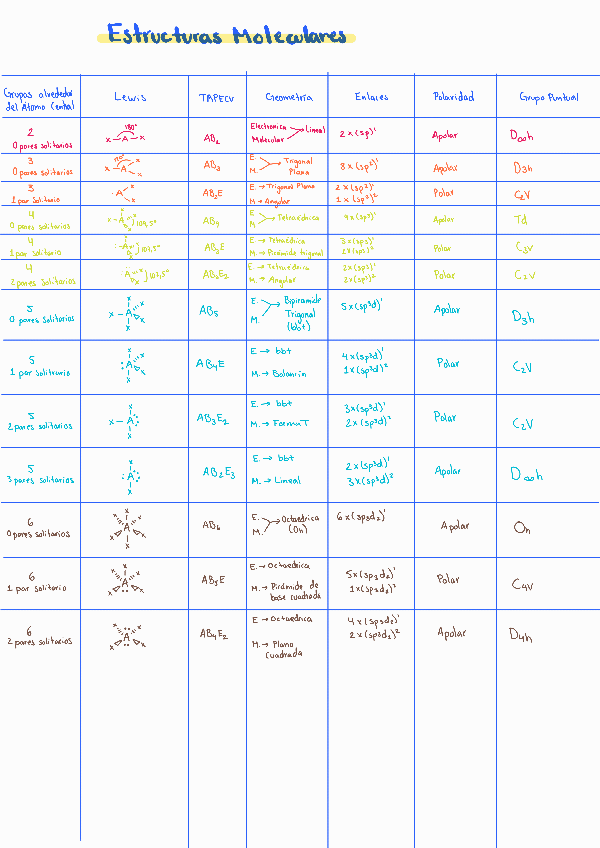 Estructuras Moleculares
Grupos alrededor del Átomo Central | Lewis | TAPECV | Geometría | Enlaces | Polaridad | Grupo Puntual
2
0 pares solitarios
180°
x-A-x
AB₂
Electrónica
Molecular
Lineal
2x(sp)¹
Apolar
D∞h
3
0 pares solitarios
120°
AB₃
E.
M.
Trigonal
Plana
3x(sp²)¹
Apolar
D3h
3
1 par Solitario
AB₂E
E. → Trigonal Plana
M → Angular
2x(sp²)¹
1x(sp²)²
Polar
C₂V
4
0 pares solitarios
109,5°
AB₄
E.
M.
Tetraédrica
4x(sp³)¹
Apolar
Td
4
1 par solitario
AB₃E
E → Tetraédrica
M. → Pirámide trigonal
Polar
C₃V
4
2 pares solitarios
AB₂E₂
E. → Tetraédrica
M. → Angular
2x(sp³)¹
2x(sp³)²
Polar
C₂V
5
0 pares Solitarios
AB₅
E.
M.
Bipiramide
Trigonal
(bbt)
5x(sp³d)¹
Apolar
D₃h
5
1 par Solitario
:A
AB₄E
E → bbt
M. → Balancín
4x(sp³d)¹
1x(sp³d)²
Polar
C₂V
5
2 pares solitarios
AB₃E₂
E. → bbt
M. → Forma T
3x(sp³d)¹
2x(sp³d)²
Polar
C₂V
5
3 pares solitarios
AB₂E₃
E. → bbt
M. → Lineal
2x(sp³d)¹
3x(sp³d)²
Apolar
D∞h
6
0 pares solitarios
AB₆
E.
M.
Octaédrica
(Oh)
6x(sp₃d₂)¹
Apolar
Oh
6
1 par solitario
AB₅E
E. → Octaedrica
M. → Pirámide de
base cuadrada
5x(sp₃d₂)¹
1x(sp₃d₂)²
Polar
C₄V
6
2 pares solitarios
AB₄E₂
E → Octaédrica
M. → Plano
Cuadrada
4x(sp₃d₂)¹
2x(sp₃d₂)²
Apolar
D₄h